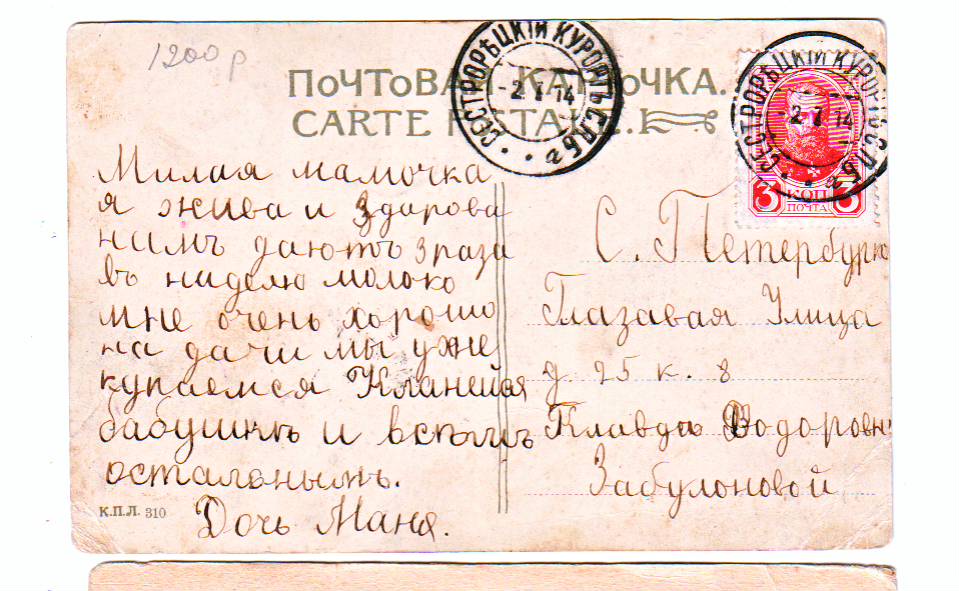 1200 р
ПОЧТОВАЯ КАРТОЧКА.
CARTE POSTALE.
СЕСТРОРѢЦКІЙ КУРОРТЪ СПБ г
-2.7.14
СЕСТРОРѢЦКІЙ КУРОРТЪ СПБ г
-2.7.14
3 КОП 3
ПОЧТА
Милая мамочка
я жива и здарова
намъ даютъ 3 раза
въ наделю молоко
мне очень хорошо
на дачи мы уже
купаемся Кланейся
бабушкѣ и всѣмъ
остальнымъ.
Дочь Маня.
С. Петербургъ
Глазавая Улица
д. 25 к. 8
Клавдѣ Фодоровн
Забулоновой
К.П.Л. 310